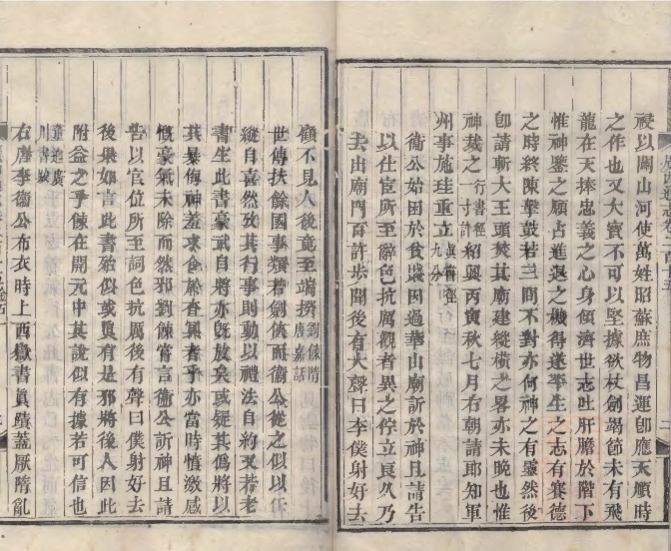 祲以關山河使萬姓昭蘇庶物昌運卽應天順時
之作也又大寶不可以堅據欲杖劍竭節未有飛
龍在天捧忠義之心身傾濟世志吐肝膽於階下
惟神鑒之願占進退之機得遂平生之志有賽德
之時終陳擊鼓若三問不對亦何神之有靈然後
卽請斬大王頭焚其廟建縱橫之畧亦未晚也惟
神裁之行書徑一寸許紹興丙寅秋七月右朝請郎知軍
州事施珪重立眞書徑九分
衞公始困於貧賤因過華山廟訴於神且請告
以仕宦所至辭色抗厲觀者異之佇立良久乃
去出廟門百許步聞後有大聲曰李僕射好去
顧不見人後竟至端揆劉餗隋唐嘉話
世傳扶餘國事類若劍俠而衞公從之似以任
縱自喜然攷其行事則動以禮法自約又若老
書生此書豪武自將亦旣放矣或疑其僞將以
其暴侮神羞求合於虯
與者乎亦當時憤激感
慨豪氣未除而然邪劉餗嘗言衞公訴神且請
告以官位所至詞色抗厲後有聲曰僕射好去
後果如言此書殆似或與有是邪將後人因此
附益之乎餗在開元中其說似有據若可信也
董逌廣川書跋
右唐李衞公布衣時上西嶽書眞蹟蓋厭隋亂